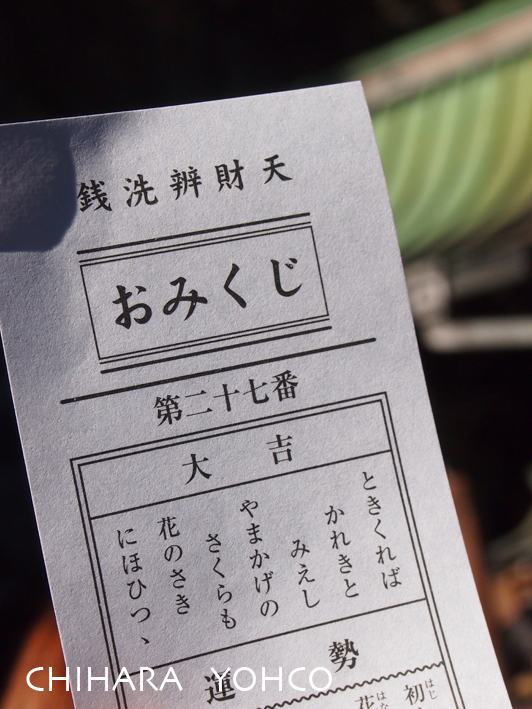 銭洗辨財天
おみくじ
第二十七番
大吉
ときくれば
かれきと
みえし
やまかげの
さくらも
花のさき
にほひつゝ
運勢
初はじ
花はな
CHIHARA YOHCO